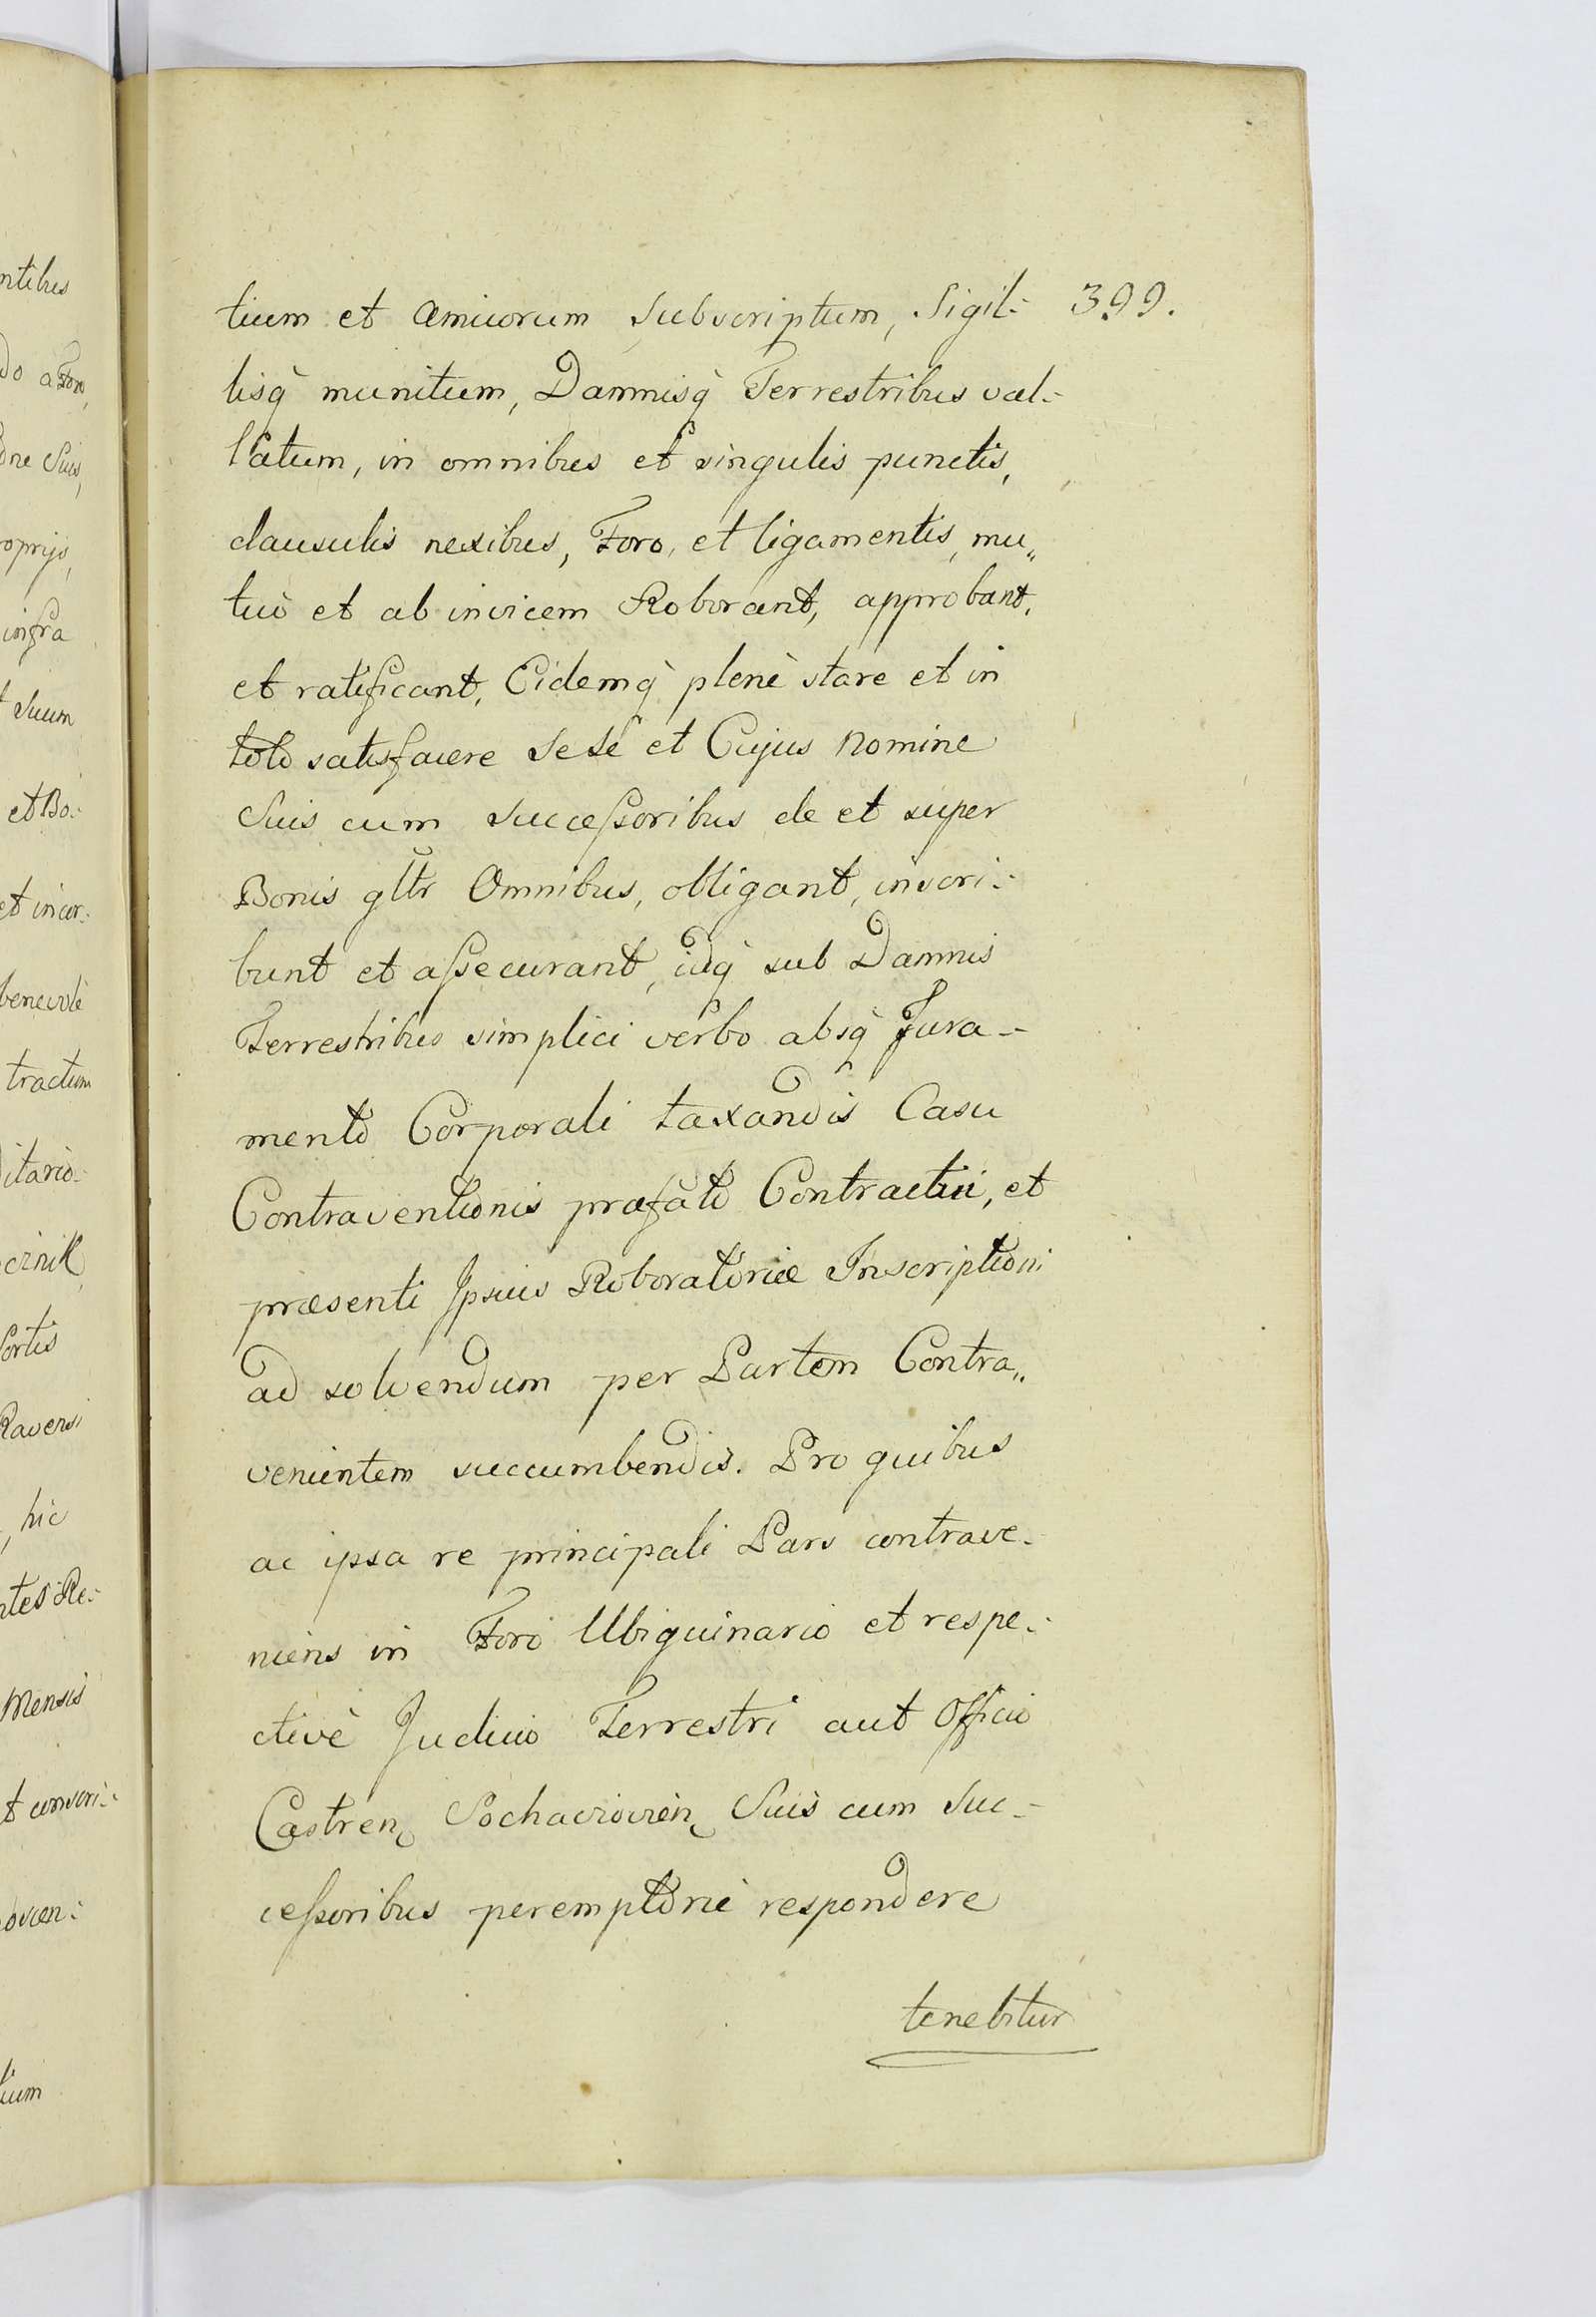 ntibus
do a Foro,
one Suis,
roprijs,
infra
t Suum
et Bo-
et incor-
benevole
tractum
ditario-
cznik
Sortis
Raversi
, hic
ntes Re-
Mensis
t conscri-
ovien:
tium
tium et Amicorum Subscriptum, Sigil- 399.
lisq̀ munitum, Damnisq̀ Terrestribus val-
latum, in omnibus et singulis punctis,
clausulis nexibus, Foro, et ligamentis, mu„
tuò et ab invicem Roborant, approbant,
et ratificant, Eidemq̀ plenè stare et in
toto satisfacere Sese et Cujus nomine
Suis cum Successoribus de et super
Bonis gltr Omnibus, obligant, inscri-
bunt et assecurant, idq̀ sub Damnis
Terrestribus simplici verbo absq̀ Jura-
mento Corporali taxandis Casu
Contraventionis præfato Contractui, et
præsenti Ipsius Roboratoriæ Inscriptioni
ad solvendum per Partem Contra„
venientem succumbendis. Pro quibus
ac ipsa re principali Pars contrave-
niens in Foro Ubiquinario et respe-
ctivè Judicio Terrestri aut Officio
Castren, Sochaviovien, Suis cum Suc-
cessoribus peremptoriè respondere
tenebitur